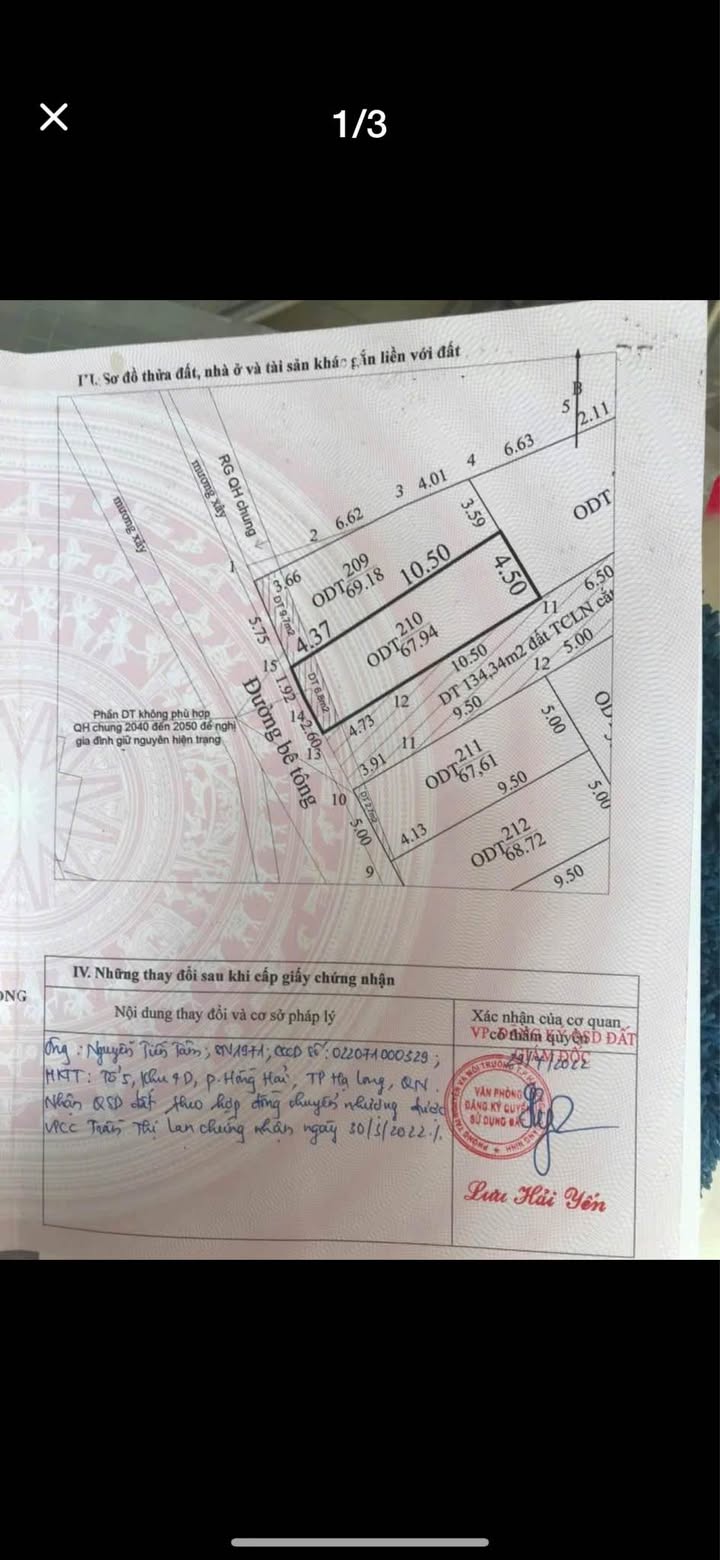 1/3
III. Sơ đồ thửa đất, nhà ở và tài sản khác gắn liền với đất
B
5
2.11
6.63
4
4.01
3
6.62
2
RG QH chung
mương xây
mương xây
1
3.59
ODT
3.66
ODT 209
69.18
10.50
4.50
DT 9.7m2
5.75
4.37
ODT 210
67.94
11
6.50
15
1.92
DT 6.8m2
10.50
DT 134,34m2 đất TCLN
12
5.00
Phần DT không phù hợp
QH chung 2040 đến 2050 đề nghị
gia đình giữ nguyên hiện trạng
Đường bê tông
14
2.60
13
4.73
12
9.50
11
3.91
5.00
ODT 211
67,61
10
DT 2.7m2
5.00
9.50
5.00
4.13
ODT 212
68.72
9
9.50
IV. Những thay đổi sau khi cấp giấy chứng nhận
Nội dung thay đổi và cơ sở pháp lý
Xác nhận của cơ quan
có thẩm quyền
VP ĐĂNG KÝ QSD ĐẤT
Ông: Nguyễn Tiến Tâm; SN 1971; CCCD số: 022071000329;
HKTT: Tổ 5, Khu 9D, P. Hồng Hải, TP Hạ Long, QN.
Nhận QSD đất theo hợp đồng chuyển nhượng được
VPCC Trần Thị Lan chứng nhận ngày 30/3/2022./.
VĂN PHÒNG
ĐĂNG KÝ QUYỀN
SỬ DỤNG ĐẤT
Lưu Hải Yến